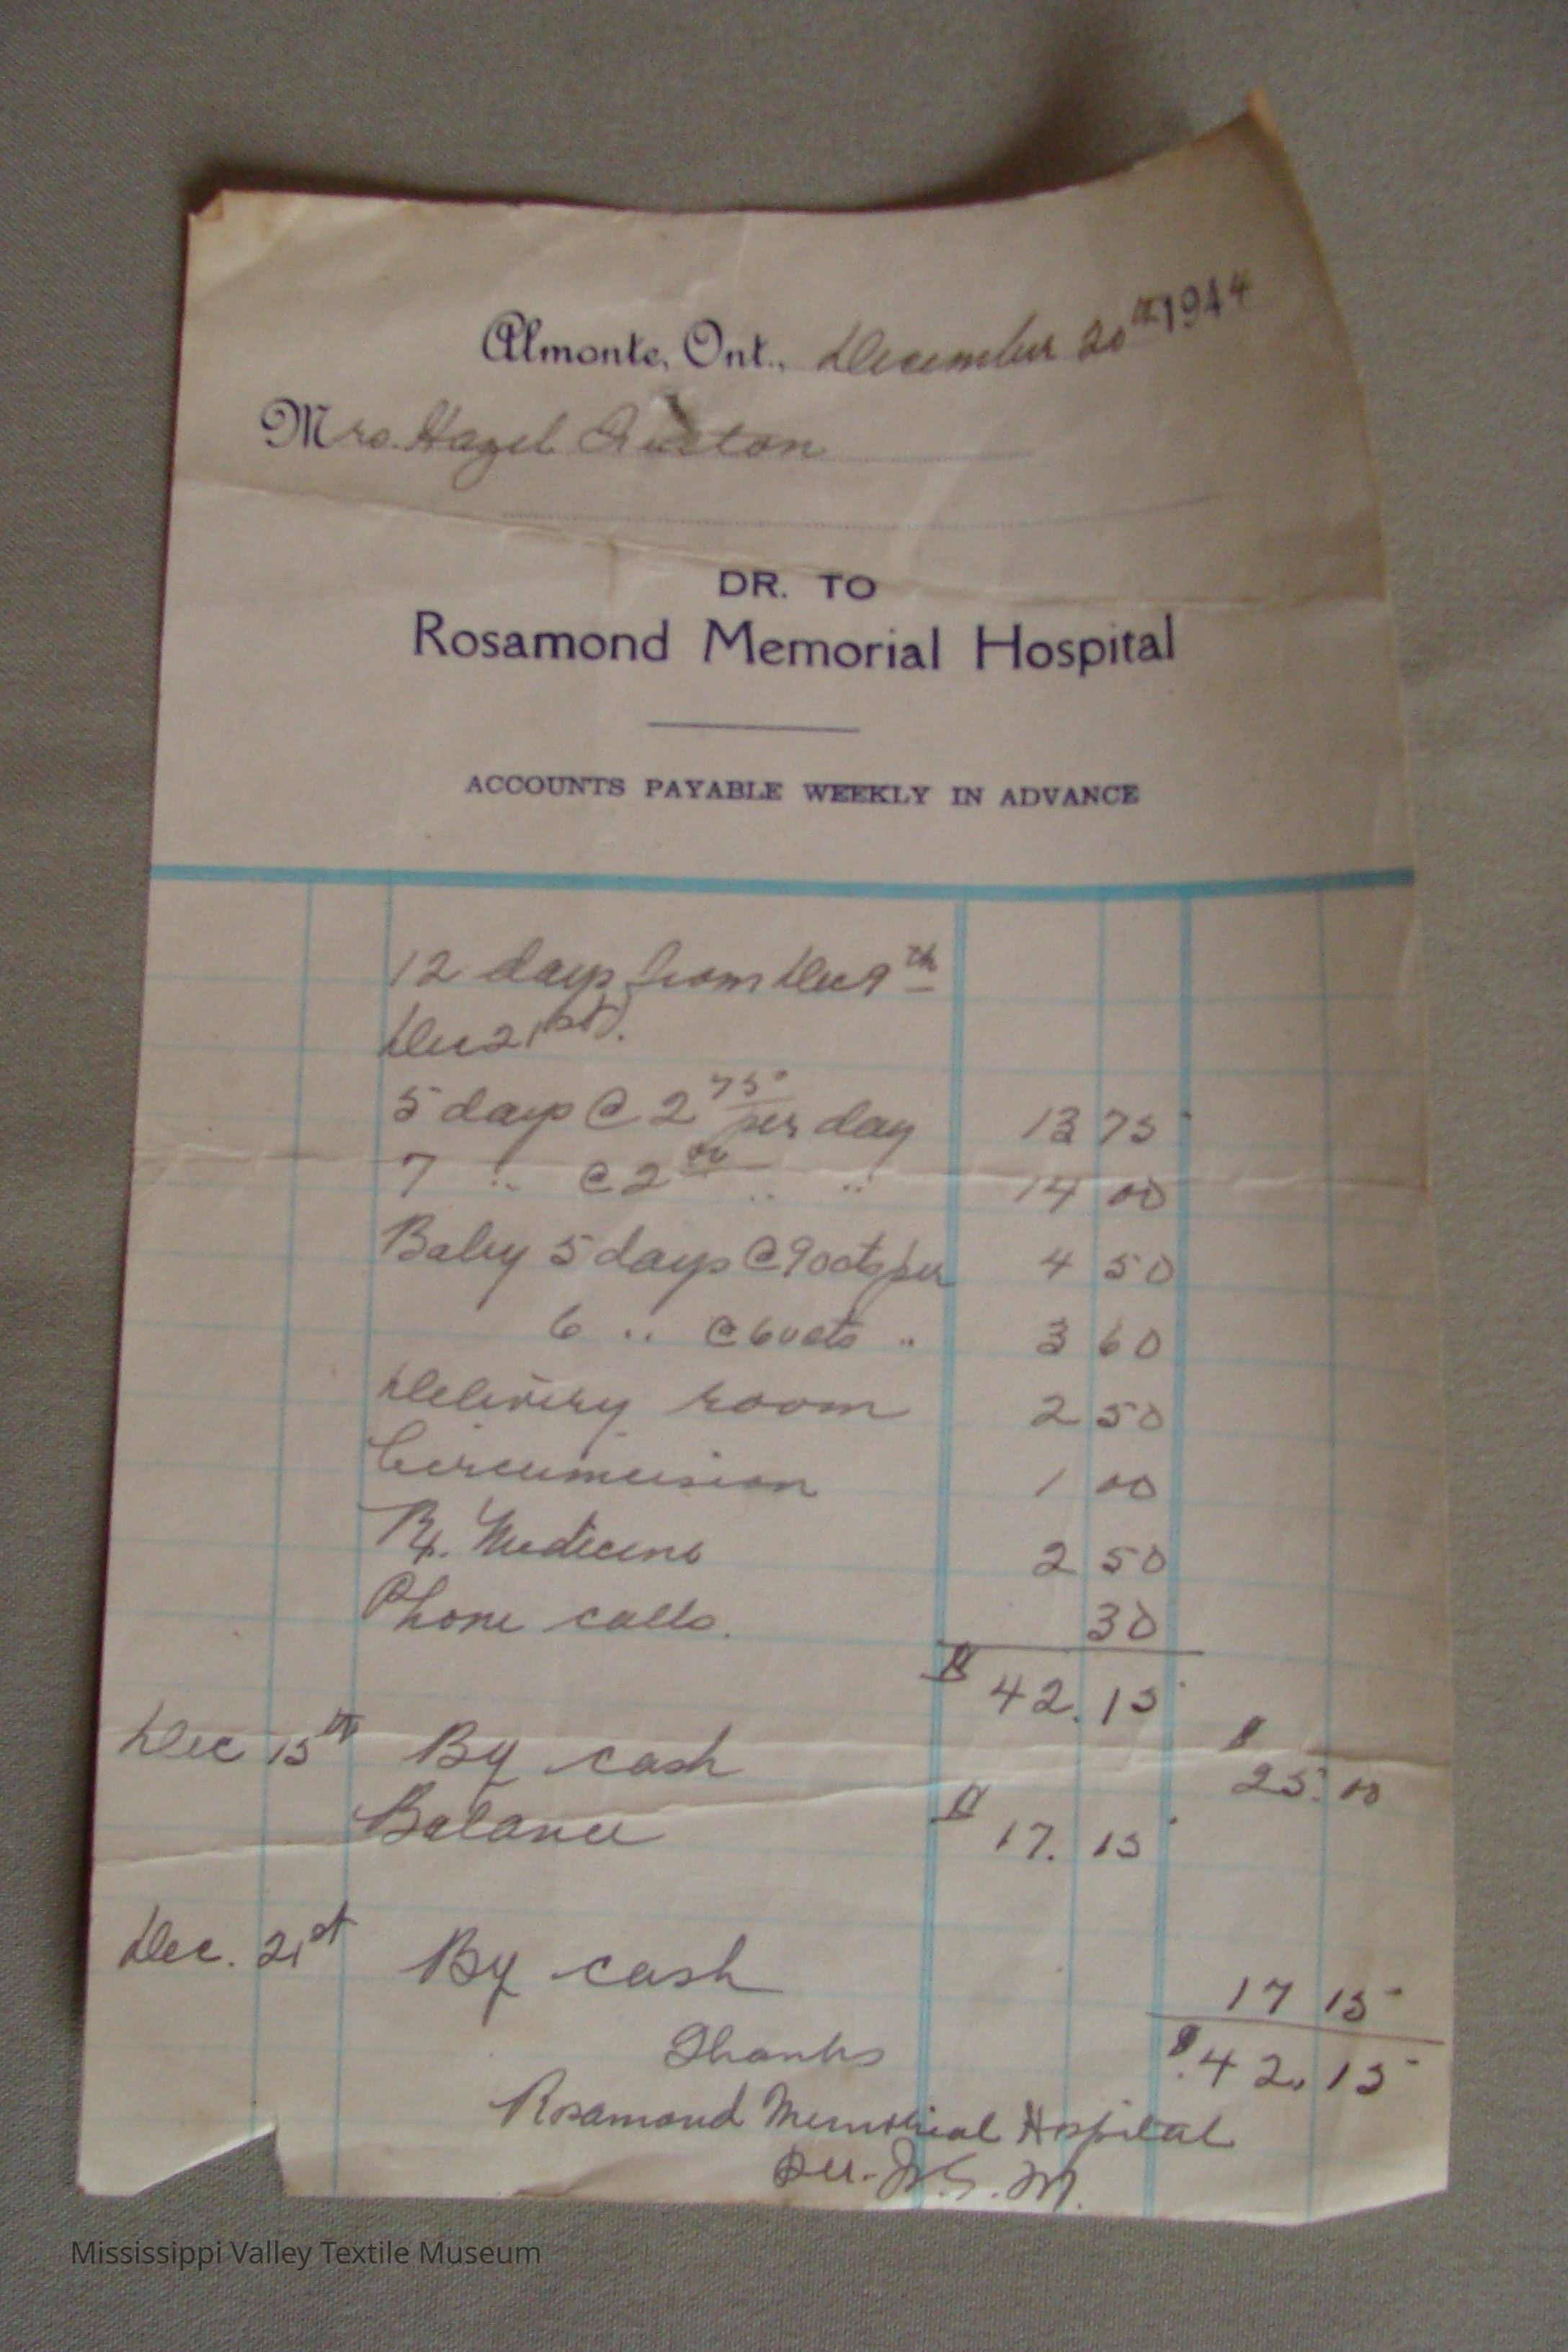 Almonte, Ont., December 20th 1944
Mrs. Hazel
DR. TO
Rosamond Memorial Hospital
ACCOUNTS PAYABLE WEEKLY IN ADVANCE
12 days from Dec 9th
Dec 21st).
5 days @ 2 75 per day 13 75
7 " @ 2 00 " " 14 00
Baby 5 days @ 90cts per 4 50
6 " @ 60cts " 3 60
Delivery room 2 50
Circumcision 1 00
Rx. Medicine 2 50
Phone calls. 30
$ 42.15
Dec 15th By cash $ 25.00
Balance $ 17.15
Dec. 21st By cash 17 15
$ 42.15
Thanks
Rosamond Memorial Hospital
Per.
Mississippi Valley Textile Museum